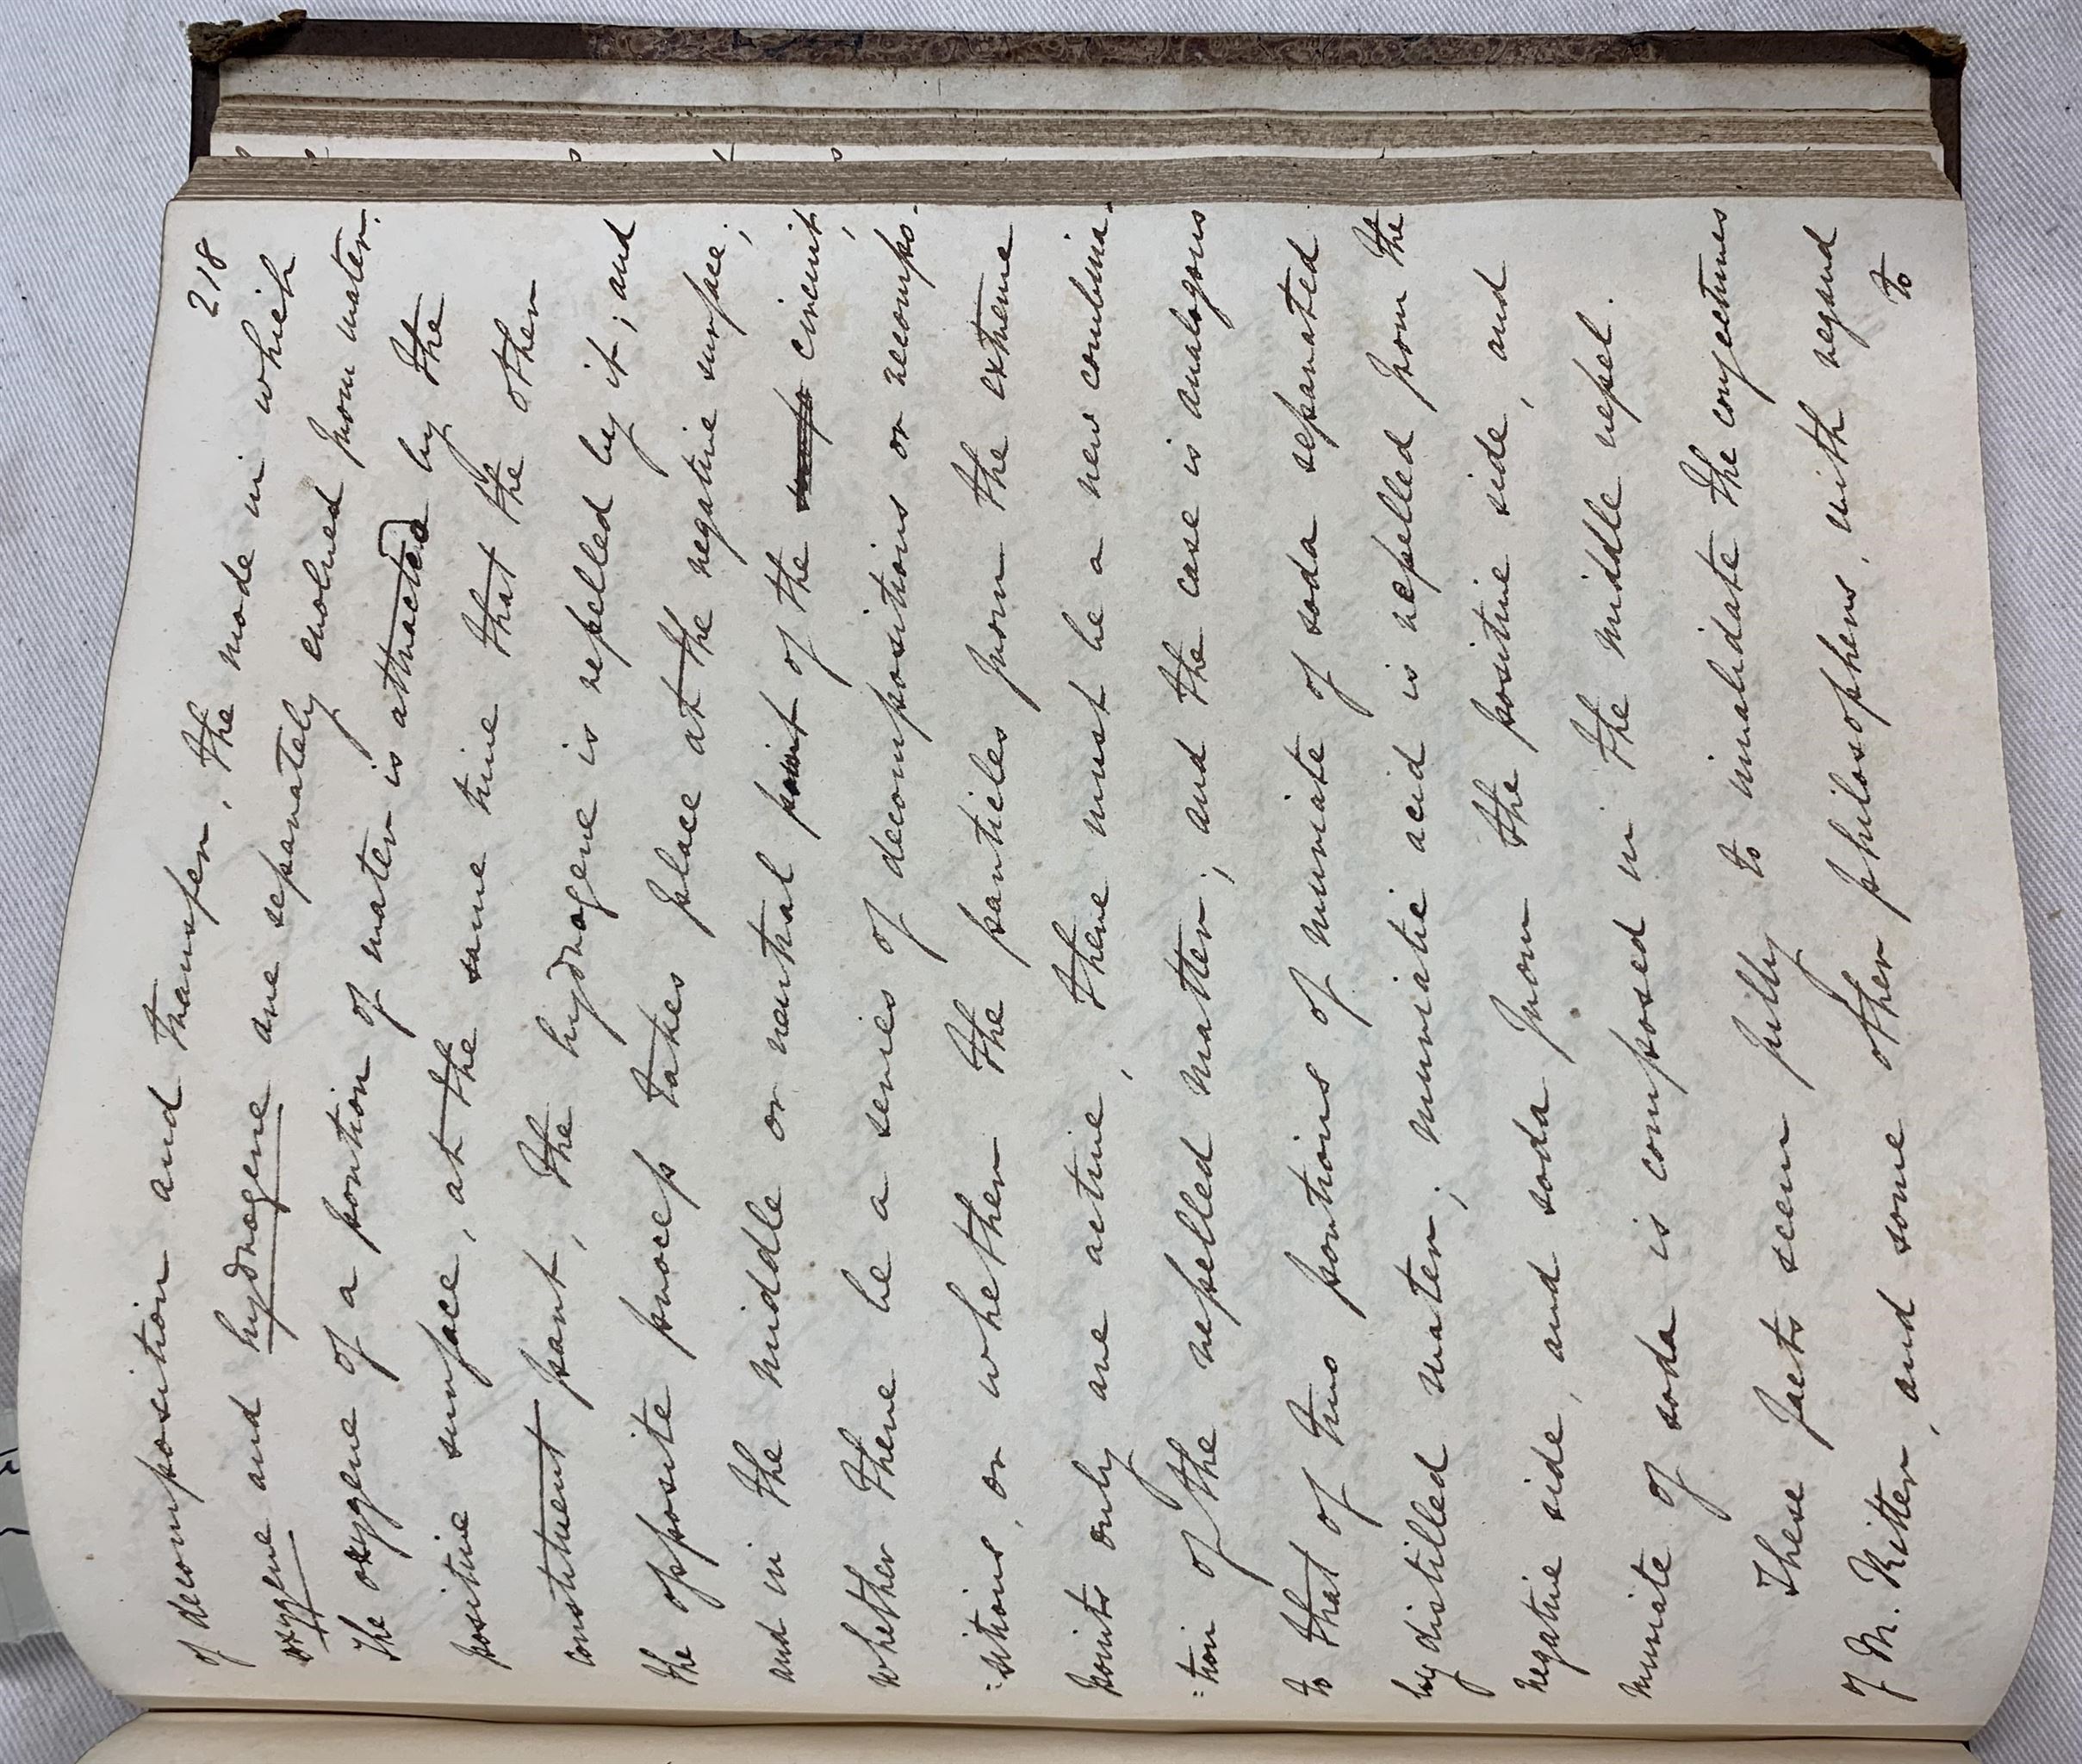 218
of decomposition and transfer, the mode in which
oxygene and hydrogene are separately evolved from water.
The oxygene of a portion of water is attracted by the
positive surface, at the same time that the other
constituent part, the hydrogene is repelled by it; and
the opposite process takes place at the negative surface;
and in the middle or neutral point of the circuit,
whether there be a series of decompositions or recompo-
:sitions, or whether the particles from the extreme
points only are active, there must be a new combina-
:tion of the repelled matter; and the case is analogous
to that of two portions of muriate of soda separated
by distilled water; muriatic acid is repelled from the
negative side, and soda from the positive side, and
muriate of soda is composed in the middle vepel.
These facts seem fully to invalidate the conjectures
of M. Ritter, and some other philosophers, with regard
to